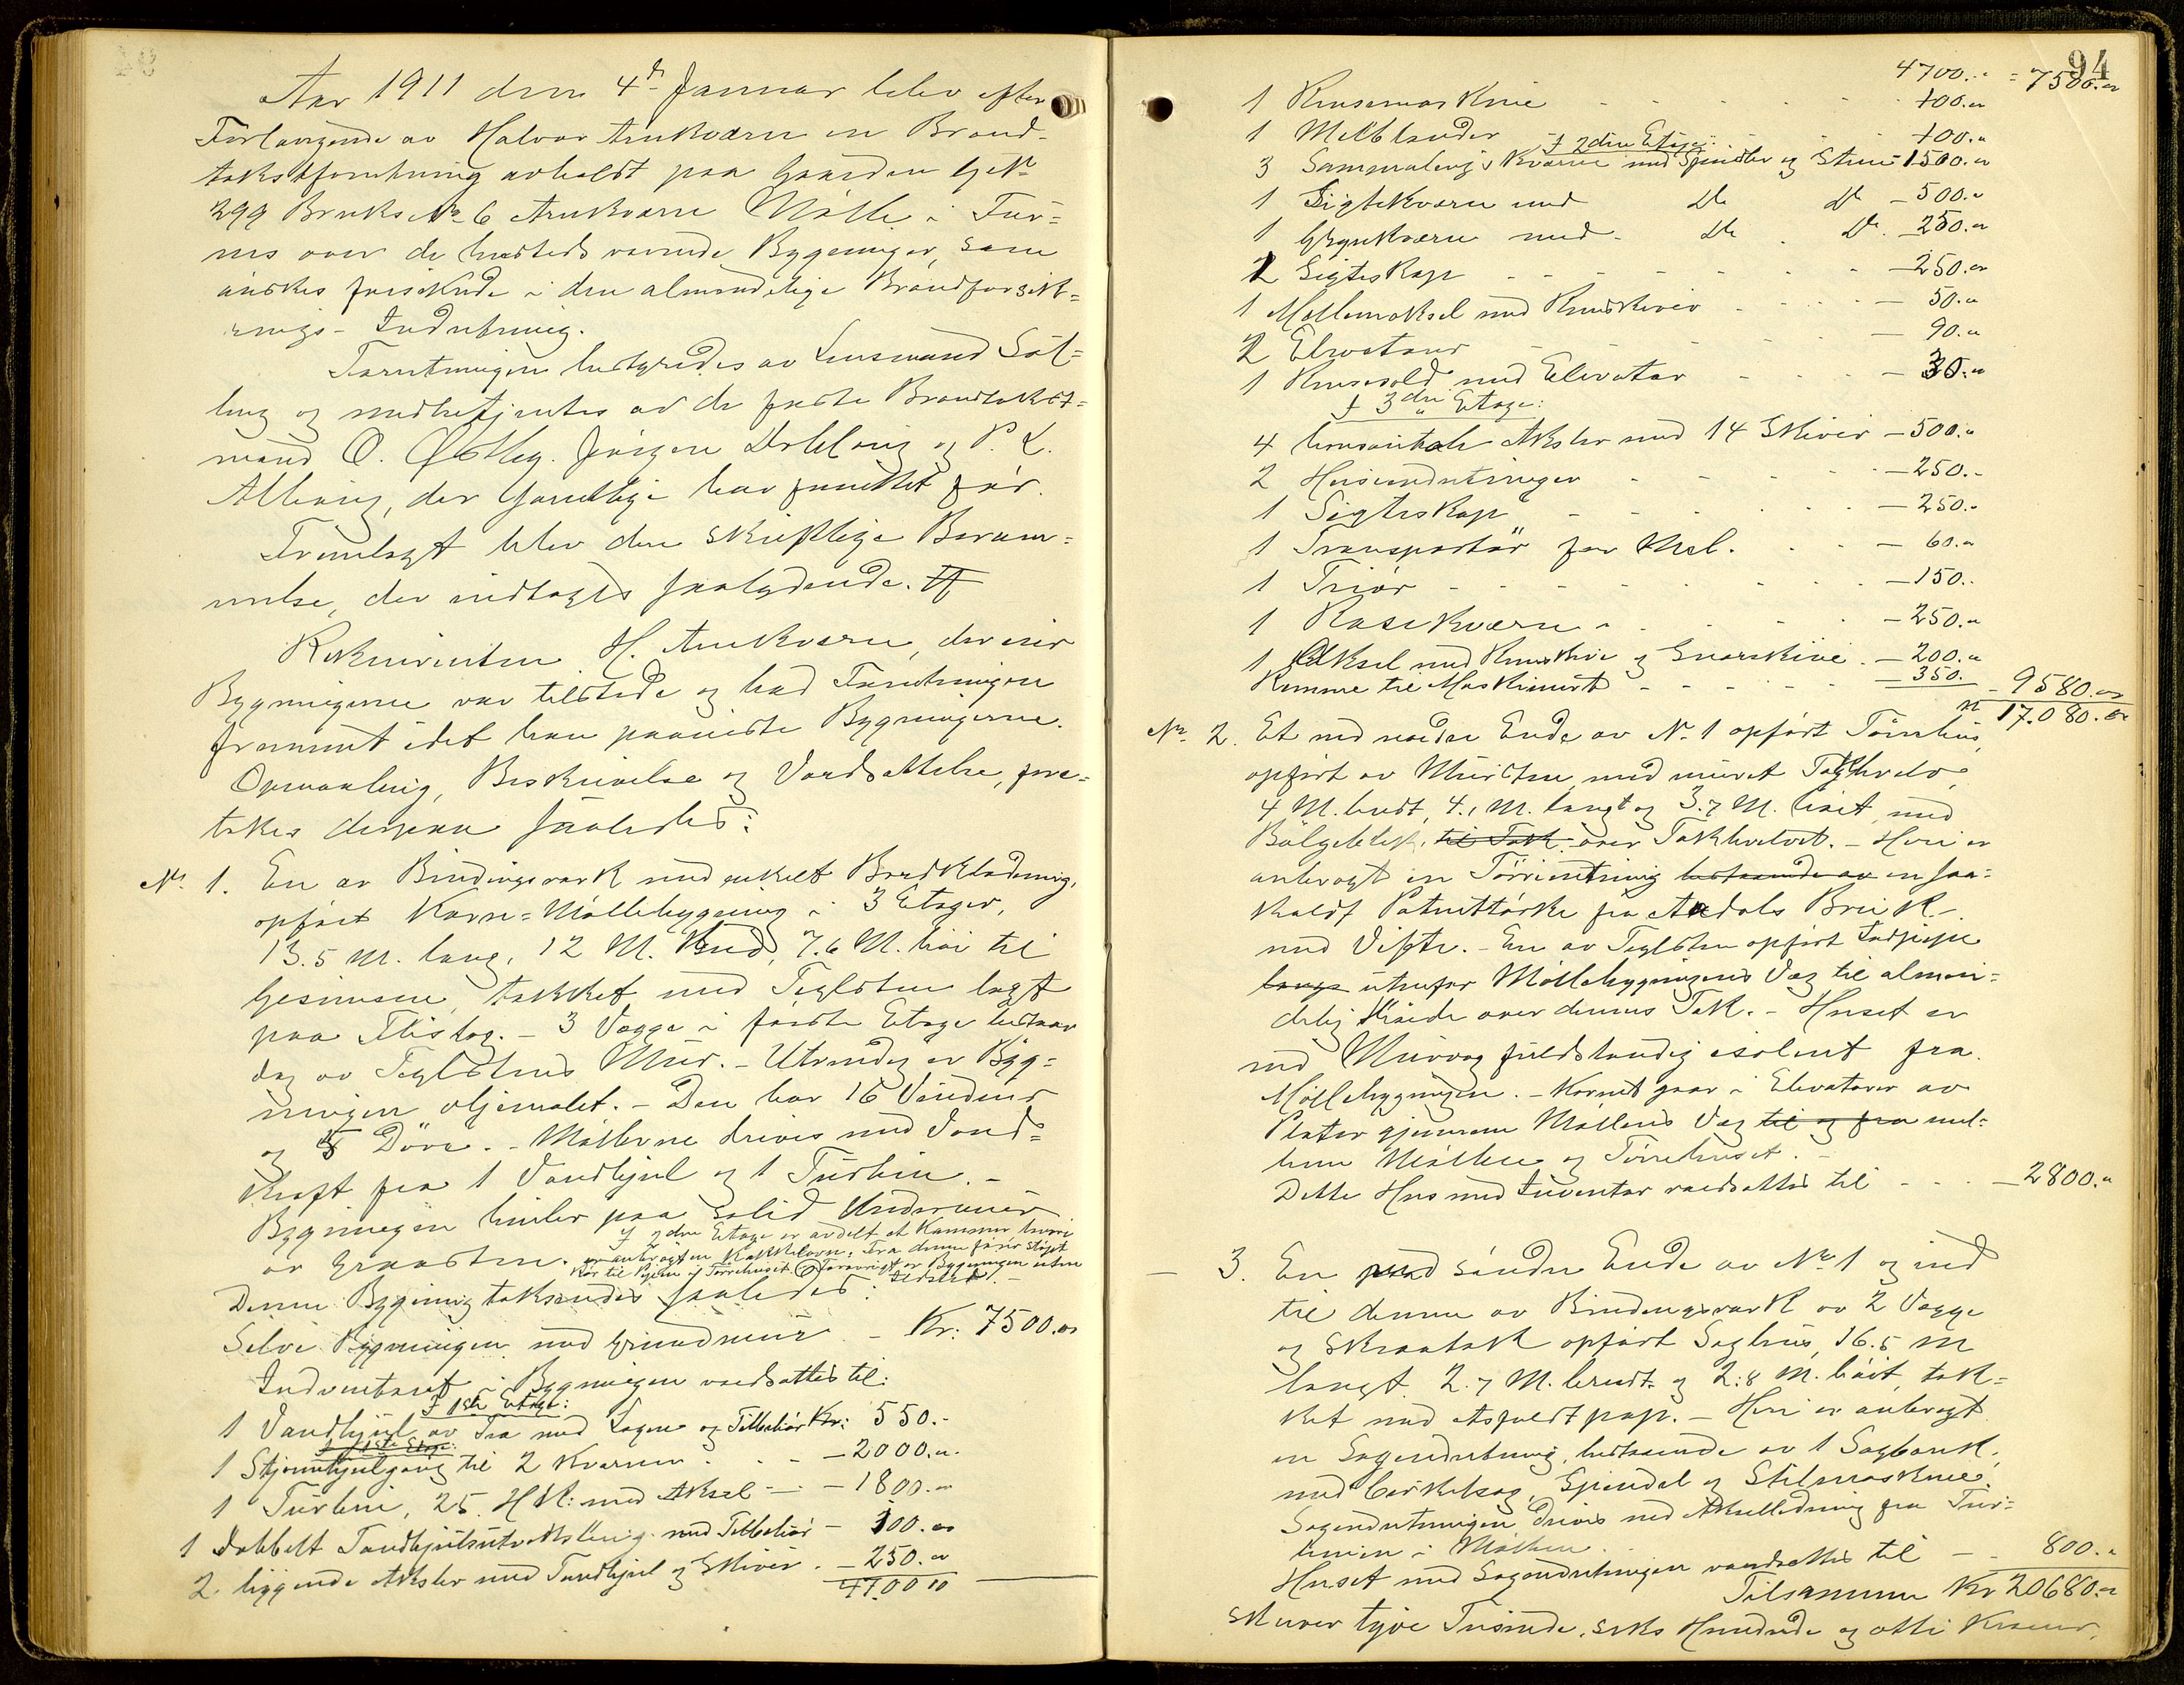 Aar 1911 den 4de Januar blev efter
Forlangende av Halvor Aukværn en Brand-
takstforretning avholdt paa Gaarden G. No
299 Bruks No 6 Aukværn Mølle i
over de hersteds værende Bygninger, som
ønskes forsikrede i den almindelige Brandforsik-
rings-Indretning.
Forretningen bestyredes av Lensmand Søl-
og medbetjentes av de faste Brandtakst-
mænd O. Østby. Jørgen og P. L.
der samtlige har funktet før.
Fremlagt blev den skriftlige Beram-
melse, der indtages saalydende. #
Rekvirenten H. Aukværn, der eier
Bygningerne var tilstede og bad Forretningen
fremmet idet han paaviste Bygningerne.
Opmaaling, Beskrivelse og Værdsættelse, fore-
tokes derpaa saaledes:
No 1. En av Bindingsværk med enkelt Bordklædning,
opført Korn-Møllebygning i 3 Etager,
13.5 M. lang, 12 M. Bred, 7.6 M. høi til
Gesimsen, tækket med Teglsten lagt
paa Flistag. - 3 Vægge i første Etage bestaar
dog av Teglstens Mur. - Utvendig er Byg-
ningen oljemalet. - Den har 16 Vinduer
og 5 Døre. - Møllerne drives med Vand-
kraft fra 1 Vandhjul og 1 Turbin. -
Bygningen hviler paa solid Undermur
av Graasten. I 2den Etage er avdelt et Kammer, hvori
er anbragt en Kakkelovn. Fra denne fører støpt
Rør til Pipen i Tørrehuset. Forøvrigt er Bygningen uten
Ildsted. -
Denne Bygning takseredes saaledes:
Selve Bygningen med Grundmur - Kr. 7500.00
Indventaret i Bygningen værdsættes til:
I 1ste Etage:
1 Vandhjul av Træ med Lagere og Tilbehør Kr: 550.-
I 1ste Etage:
1 Stjernehjulgang til 2 Kværner - - - 2000.00
1 Turbin, 25 HK: med Aksel - - 1800.00
1 Dobbelt Tandhjulsutveksling med Tilbehør - 100.00
2 liggende Aksler med Tandhjul og Skiver. - 250.00
4700.00
94
4700.- = 7500.00
1 Rensemaskine - - - - 100.00
1 Melblander - - - 100.00
I 2den Etage:
3 Sammalings Kværne med Spindler og Stene - 1500.00
1 Sigtekværn med Do Do - 500.00
1 Grynkværn med Do Do - 250.00
1 Sigteskap - - - - - 250.00
1 Mellemaksel med Remskiver - - - 50.00
2 Elevatorer - - - - 90.00
1 Rensesold med Elevator - - - 30.00
I 3die Etage:
4 horisontale Aksler med 14 Skiver - 500.00
2 Heiseindretninger - - - 250.-
1 Sigteskap - - - - 250.-
1 Transportør for Mel. - - - 60.00
1 Triør - - - - - 150.-
1 Rasekværn - - - - 250.00
1 Aksel med Remskive og Snorskive - 200.00
Remme til Maskineriet - - - - 350. - 9580.00
17.080.00
No 2. Et ved nordre Ende av No 1 opført Tørrehus,
opført av Mursten, med muret Takhvælv,
4 M. bredt, 4.1 M. langt og 3.7 M. høit, med
Bølgeblik til Tak over Takhvælvet. - Heri er
anbragt en Tørreindretning bestaaende av en saa-
kaldt Patenttørke fra Aadals Bruk -
med Vifte. - En av Teglsten opført Ildpipe
langs utenfor Møllebygningens Væg til almin-
delig Høide over dennes Tak. - Huset er
ved Murvæg fuldstændig isoleret fra
Møllebygningen. - Kornet gaar i Elevatorer av
Plater gjennem Møllens Væg til og fra mel-
lem Møllen og Tørrehuset. -
Dette Hus med Inventar værdsættes til - - - 2800.00
- 3. En ved søndre Ende av No 1 og ind
til denne av Bindingsværk av 2 Vægge
og Skraatak opført Saghus, 16.5 M
langt 2.7 M. bredt og 2.8 M. høit, tæk-
ket med Asfaltpap. - Heri er anbragt
en Sagindretning, bestaaende av 1 Sagbænk,
med Cirkelsag, Spindel og Stilmaskine.
Sagindretningen drives med Akselledning fra Tur-
binen i Møllen.
Huset med Sagindretningen værdsættes til - - 800.00
Tilsammen Kr 20680.00
Skriver tyve Tusinde, seks Hundrede og otti Kroner.